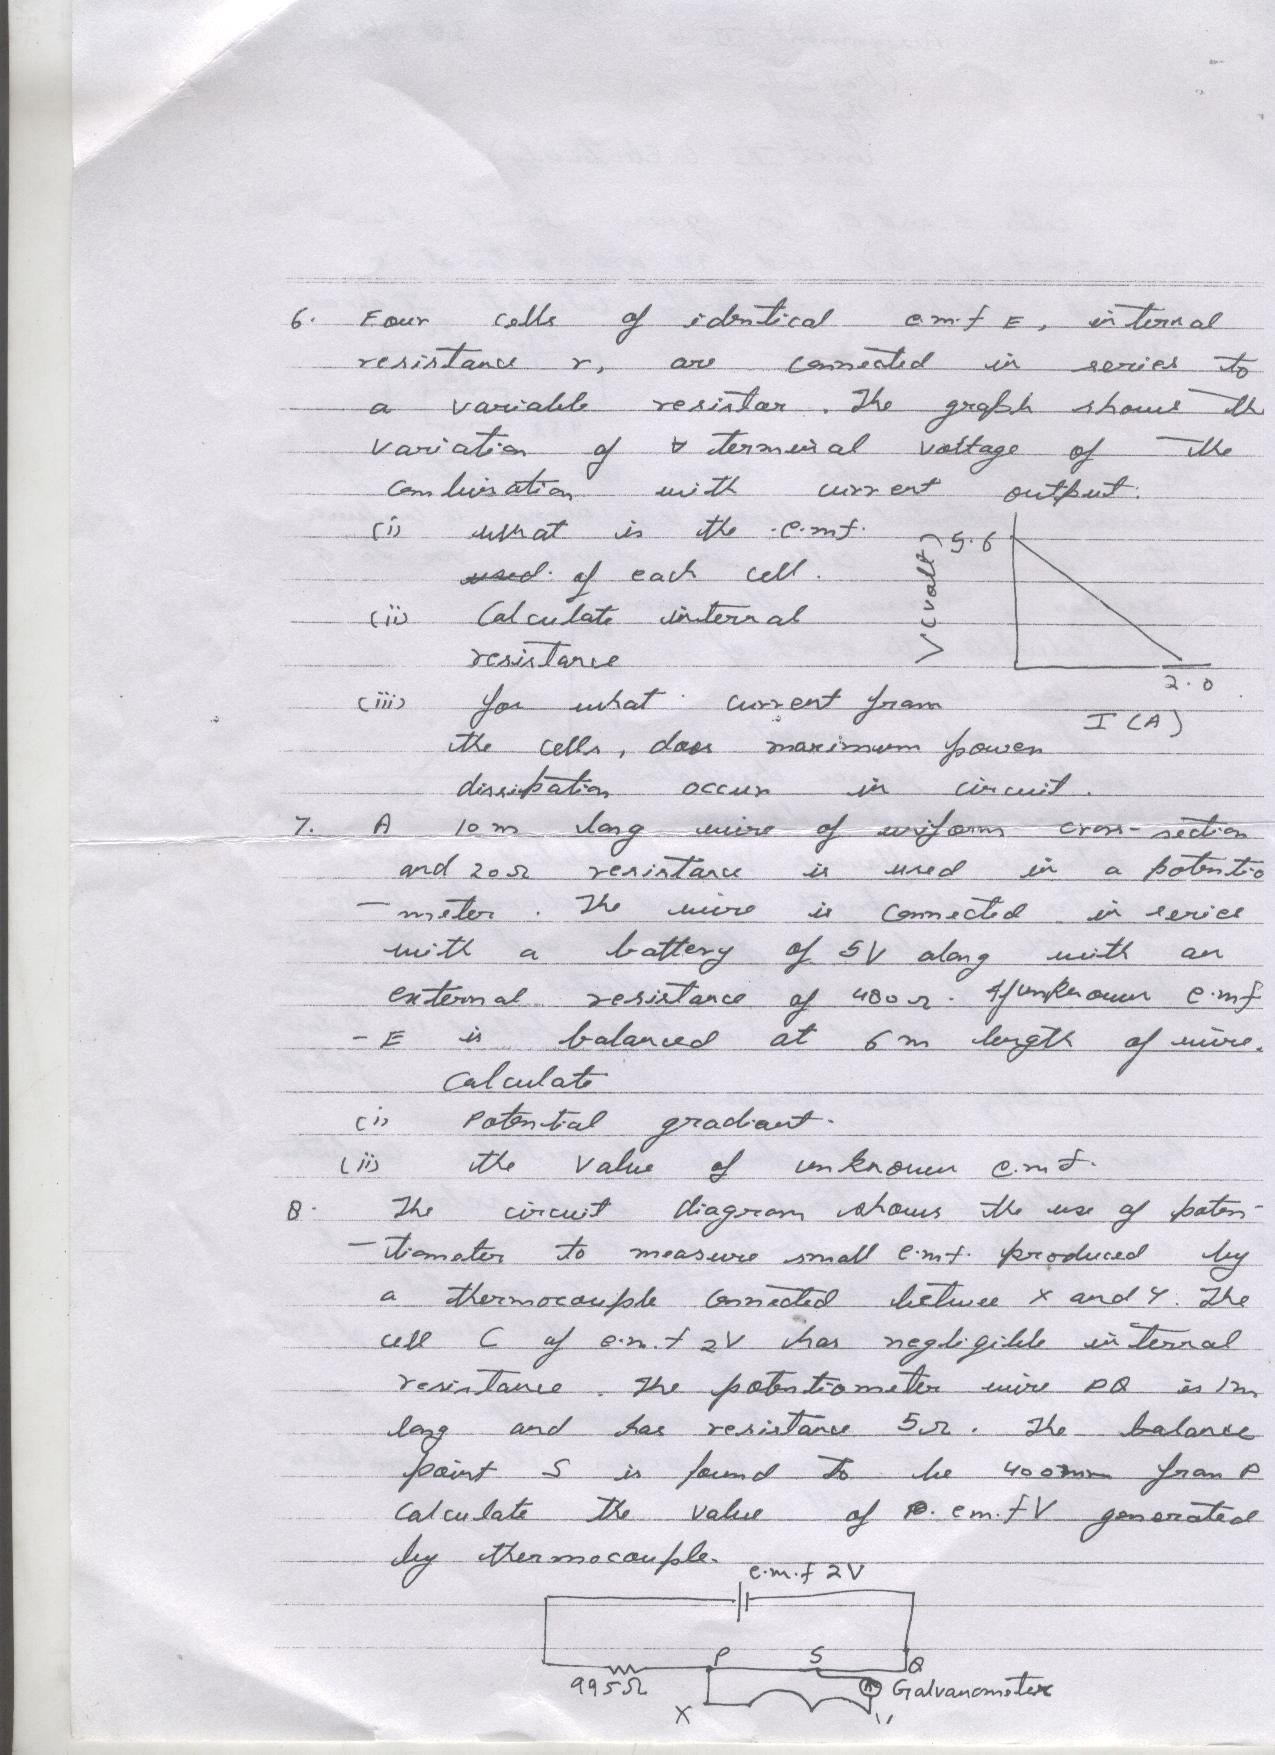 6. Four cells of identical e.m.f E, internal
resistance r, are connected in series to
a variable resistor. The graph shows the
variation of terminal voltage of the
combination with current output.
(i) what is the e.m.f.
used. of each cell.
(ii) Calculate internal
resistance
(iii) for what current from
the cells, does maximum power
dissipation occur in circuit.
V (volt)
5.6
2.0
I (A)
7. A 10m long wire of uniform cross-section
and 20Ω resistance is used in a potentio
-meter. The wire is connected in series
with a battery of 5V along with an
external resistance of 480Ω. If unknown e.m.f
- E is balanced at 6m length of wire.
Calculate
(i) Potential gradient.
(ii) the value of unknown e.m.f.
8. The circuit diagram shows the use of poten-
-tiometer to measure small e.m.f. produced by
a thermocouple connected betwee X and Y. The
cell C of e.m.f 2V has negligible internal
resistance. The potentiometer wire PQ is 1m
long and has resistance 5Ω. The balance
point S is found to be 400mm from P
Calculate the value of e.m.f V generated
by thermocouple.
e.m.f 2V
P S Q
995Ω
Galvanometer
X